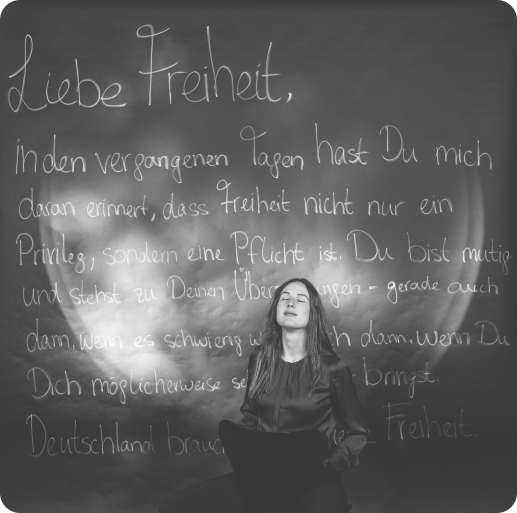 Liebe Freiheit,
in den vergangenen Tagen hast Du mich
daran erinnert, dass Freiheit nicht nur ein
Privileg, sondern eine Pflicht ist. Du bist mutig
und stehst zu Deinen - gerade auch
dann, wenn es schwierig dann, wenn Du
Dich möglicherweise bringst.
Deutschland Freiheit.